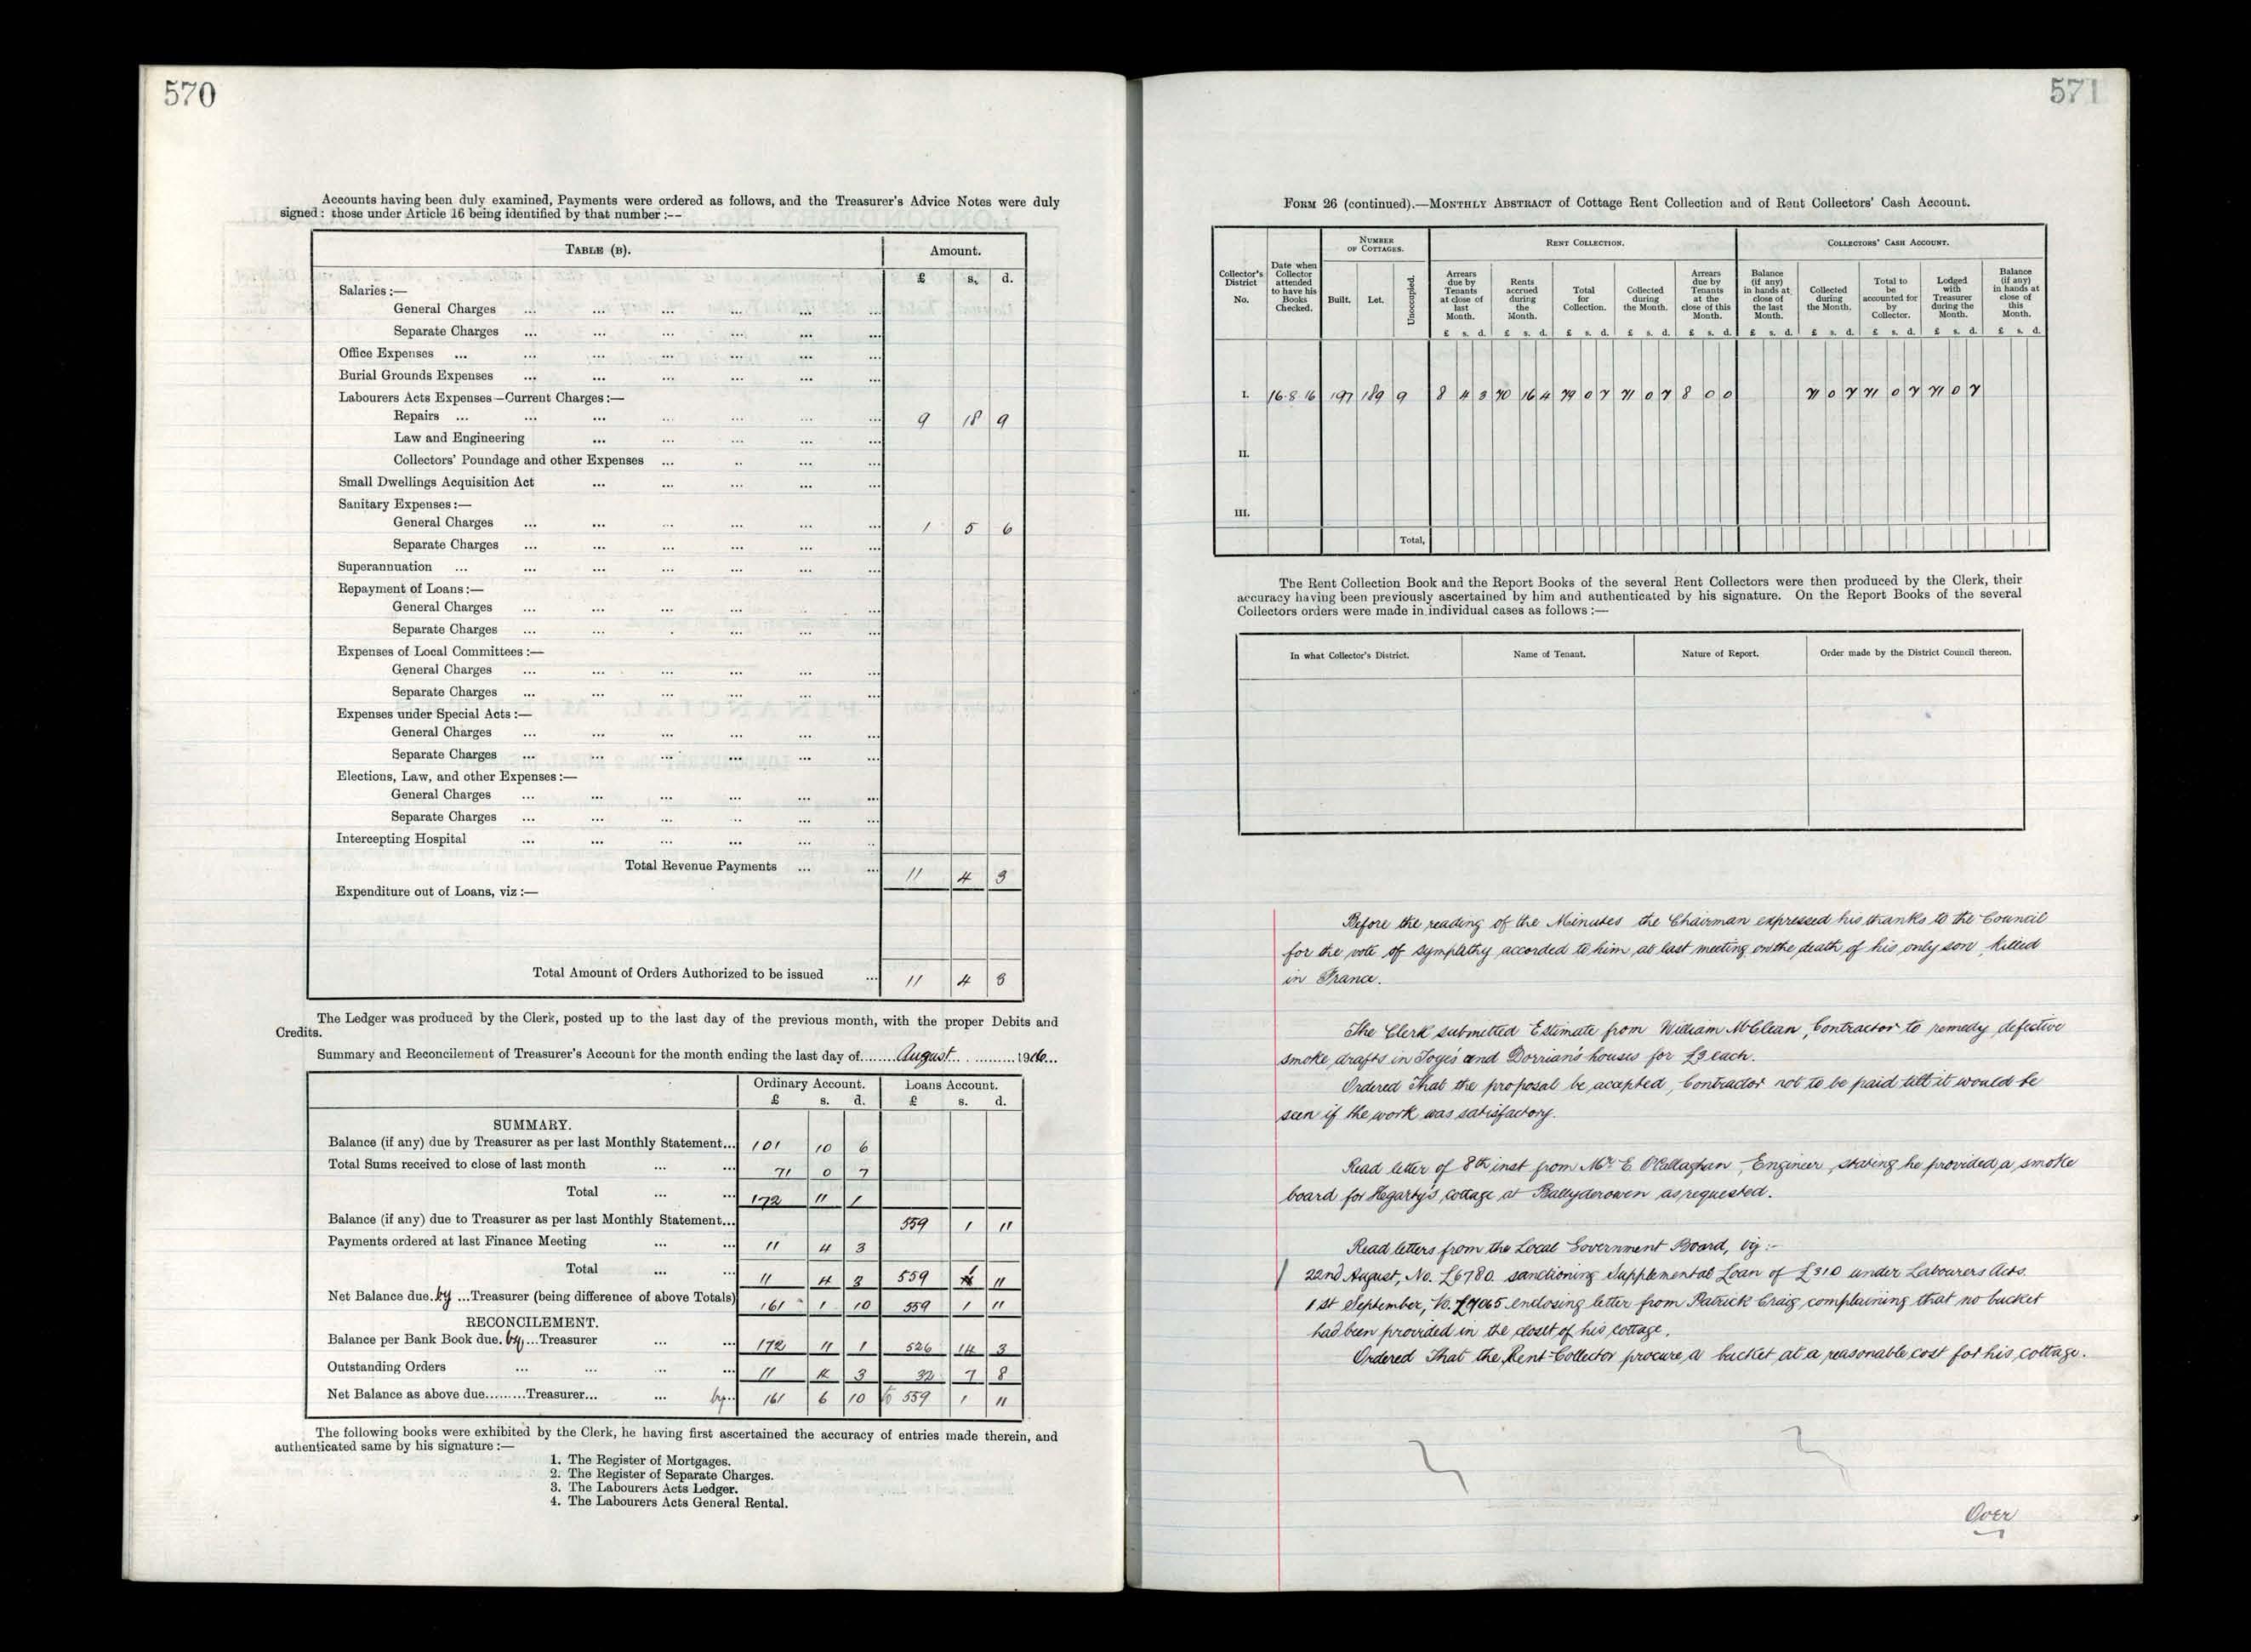 570
Accounts having been duly examined, Payments were ordered as follows, and the Treasurer's Advice Notes were duly
signed: those under Article 16 being identified by that number:--
TABLE (B). Amount.
£ s. d.
Salaries:—
General Charges ... ... ... ... ... ...
Separate Charges ... ... ... ... ... ...
Office Expenses ... ... ... ... ... ...
Burial Grounds Expenses ... ... ... ... ... ...
Labourers Acts Expenses—Current Charges:—
Repairs ... ... ... ... ... ... 9 18 9
Law and Engineering ... ... ... ... ...
Collectors' Poundage and other Expenses ... .. ... ...
Small Dwellings Acquisition Act ... ... ... ... ...
Sanitary Expenses:—
General Charges ... ... ... ... ... ... 1 5 6
Separate Charges ... ... ... ... ... ...
Superannuation ... ... ... ... ... ...
Repayment of Loans:—
General Charges ... ... ... ... ... ...
Separate Charges ... ... . ... ... ...
Expenses of Local Committees:—
General Charges ... ... ... ... ... ...
Separate Charges ... ... ... ... ... ...
Expenses under Special Acts:—
General Charges ... ... ... ... ... ...
Separate Charges ... ... ... ... ... ...
Elections, Law, and other Expenses:—
General Charges ... ... ... ... ... ...
Separate Charges ... ... ... .. ... ...
Intercepting Hospital ... ... ... ... ... ..
Total Revenue Payments ... ... 11 4 3
Expenditure out of Loans, viz:—
Total Amount of Orders Authorized to be issued ... 11 4 3
The Ledger was produced by the Clerk, posted up to the last day of the previous month, with the proper Debits and
Credits.
Summary and Reconcilement of Treasurer's Account for the month ending the last day of........August.. . ..........1916...
Ordinary Account. Loans Account.
£ s. d. £ s. d.
SUMMARY.
Balance (if any) due by Treasurer as per last Monthly Statement... 101 10 6
Total Sums received to close of last month ... ... 71 0 7
Total ... ... 172 11 1
Balance (if any) due to Treasurer as per last Monthly Statement... 559 1 11
Payments ordered at last Finance Meeting ... ... 11 4 3
Total ... ... 11 4 3 559 1 11
Net Balance due.by ...Treasurer (being difference of above Totals) 161 1 10 559 1 11
RECONCILEMENT.
Balance per Bank Book due.by,...Treasurer ... ... 172 11 1 526 14 3
Outstanding Orders ... ... ... ... 11 4 3 32 7 8
Net Balance as above due.........Treasurer... ... by... 161 6 10 to 559 1 11
The following books were exhibited by the Clerk, he having first ascertained the accuracy of entries made therein, and
authenticated same by his signature:—
1. The Register of Mortgages.
2. The Register of Separate Charges.
3. The Labourers Acts Ledger.
4. The Labourers Acts General Rental.
571
FORM 26 (continued).—MONTHLY ABSTRACT of Cottage Rent Collection and of Rent Collectors' Cash Account.
NUMBER OF COTTAGES. RENT COLLECTION. COLLECTORS' CASH ACCOUNT.
Collector's District No. Date when Collector attended to have his Books Checked. Built. Let. Unoccupied. Arrears due by Tenants at close of last Month. Rents accrued during the Month. Total for Collection. Collected during the Month. Arrears due by Tenants at the close of this Month. Balance (if any) in hands at close of the last Month. Collected during the Month. Total to be accounted for by Collector. Lodged with Treasurer during the Month. Balance (if any) in hands at close of this Month.
£ s. d. £ s. d. £ s. d. £ s. d. £ s. d. £ s. d. £ s. d. £ s. d. £ s. d. £ s. d.
I. 16.8.16 197 189 9 8 4 3 70 16 4 79 0 7 71 0 7 8 0 0 71 0 7 71 0 7 71 0 7
II.
III.
Total,
The Rent Collection Book and the Report Books of the several Rent Collectors were then produced by the Clerk, their
accuracy having been previously ascertained by him and authenticated by his signature. On the Report Books of the several
Collectors orders were made in individual cases as follows:—
In what Collector's District. Name of Tenant. Nature of Report. Order made by the District Council thereon.
Before the reading of the Minutes the Chairman expressed his thanks to the Council
for the vote of sympathy accorded to him at last meeting on the death of his only son, killed
in France.
The Clerk submitted Estimate from William McClean, Contractor to remedy defective
smoke drafts in Toye's and Dorrian's houses for £3 each.
Ordered That the proposal be accepted, Contractor not to be paid till it would be
seen if the work was satisfactory.
Read letter of 8th inst from Mr E. O'Callaghan, Engineer, stating he provided a smoke
board for Hegarty's cottage at Ballyderowen as requested.
Read letters from the Local Government Board, viz:-
22nd August, No. L6780 sanctioning Supplemental Loan of £310 under Labourers Acts.
1st September, No. L7065 enclosing letter from Patrick Craig complaining that no bucket
had been provided in the closet of his cottage.
Ordered That the Rent-Collector procure a bucket at a reasonable cost for his cottage.
Over